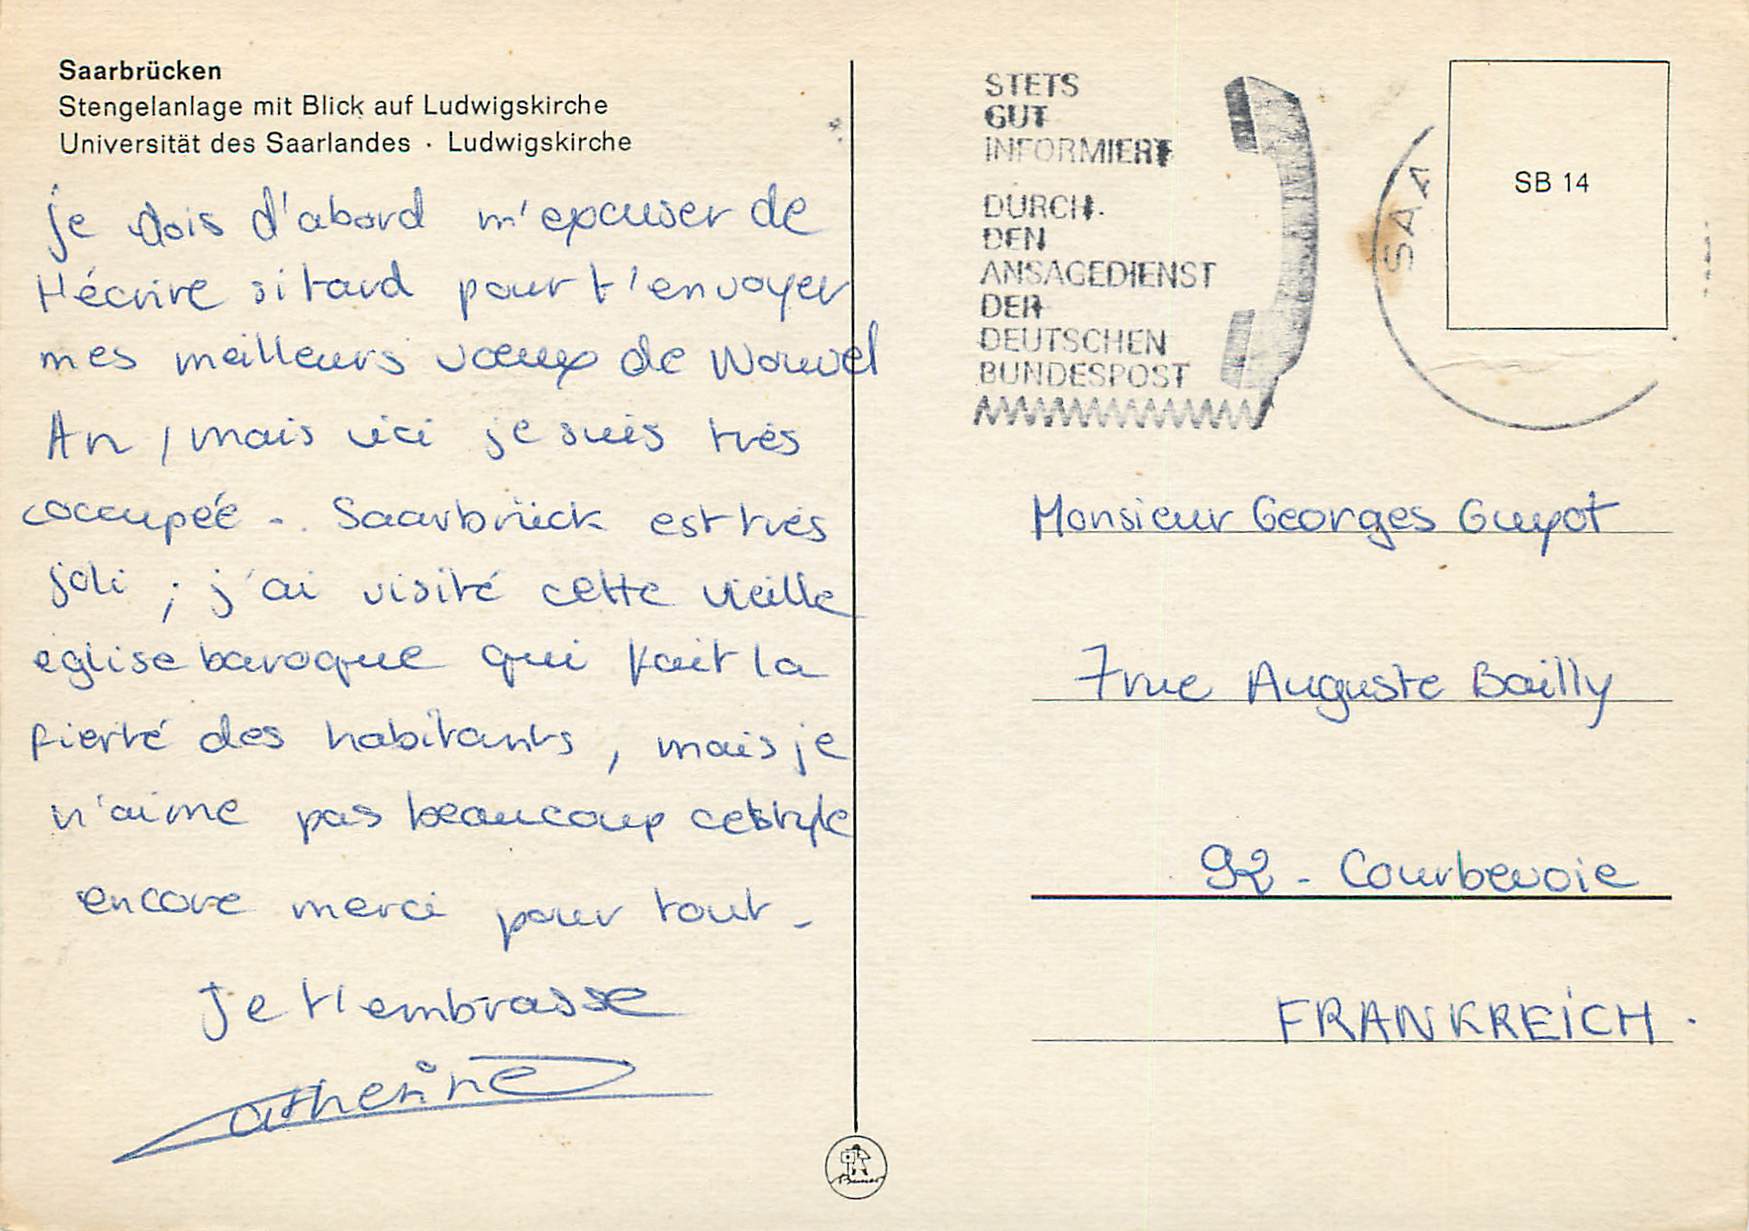 Saarbrücken
Stengelanlage mit Blick auf Ludwigskirche
Universität des Saarlandes · Ludwigskirche
je dois d'abord m'excuser de
t'écrire si tard pour t'envoyer
mes meilleurs vœux de Nouvel
An, mais ici je suis très
occupée -. Saarbrück est très
joli ; j'ai visité cette vieille
église baroque qui fait la
fierté des habitants, mais je
n'aime pas beaucoup ce style
encore merci pour tout -
Je t'embrasse
Catherine
STETS
GUT
INFORMIERT
DURCH
DEN
ANSAGEDIENST
DER
DEUTSCHEN
BUNDESPOST
SAA
SB 14
Monsieur Georges Guyot
7 rue Auguste Bailly
92 - Courbevoie
FRANKREICH.